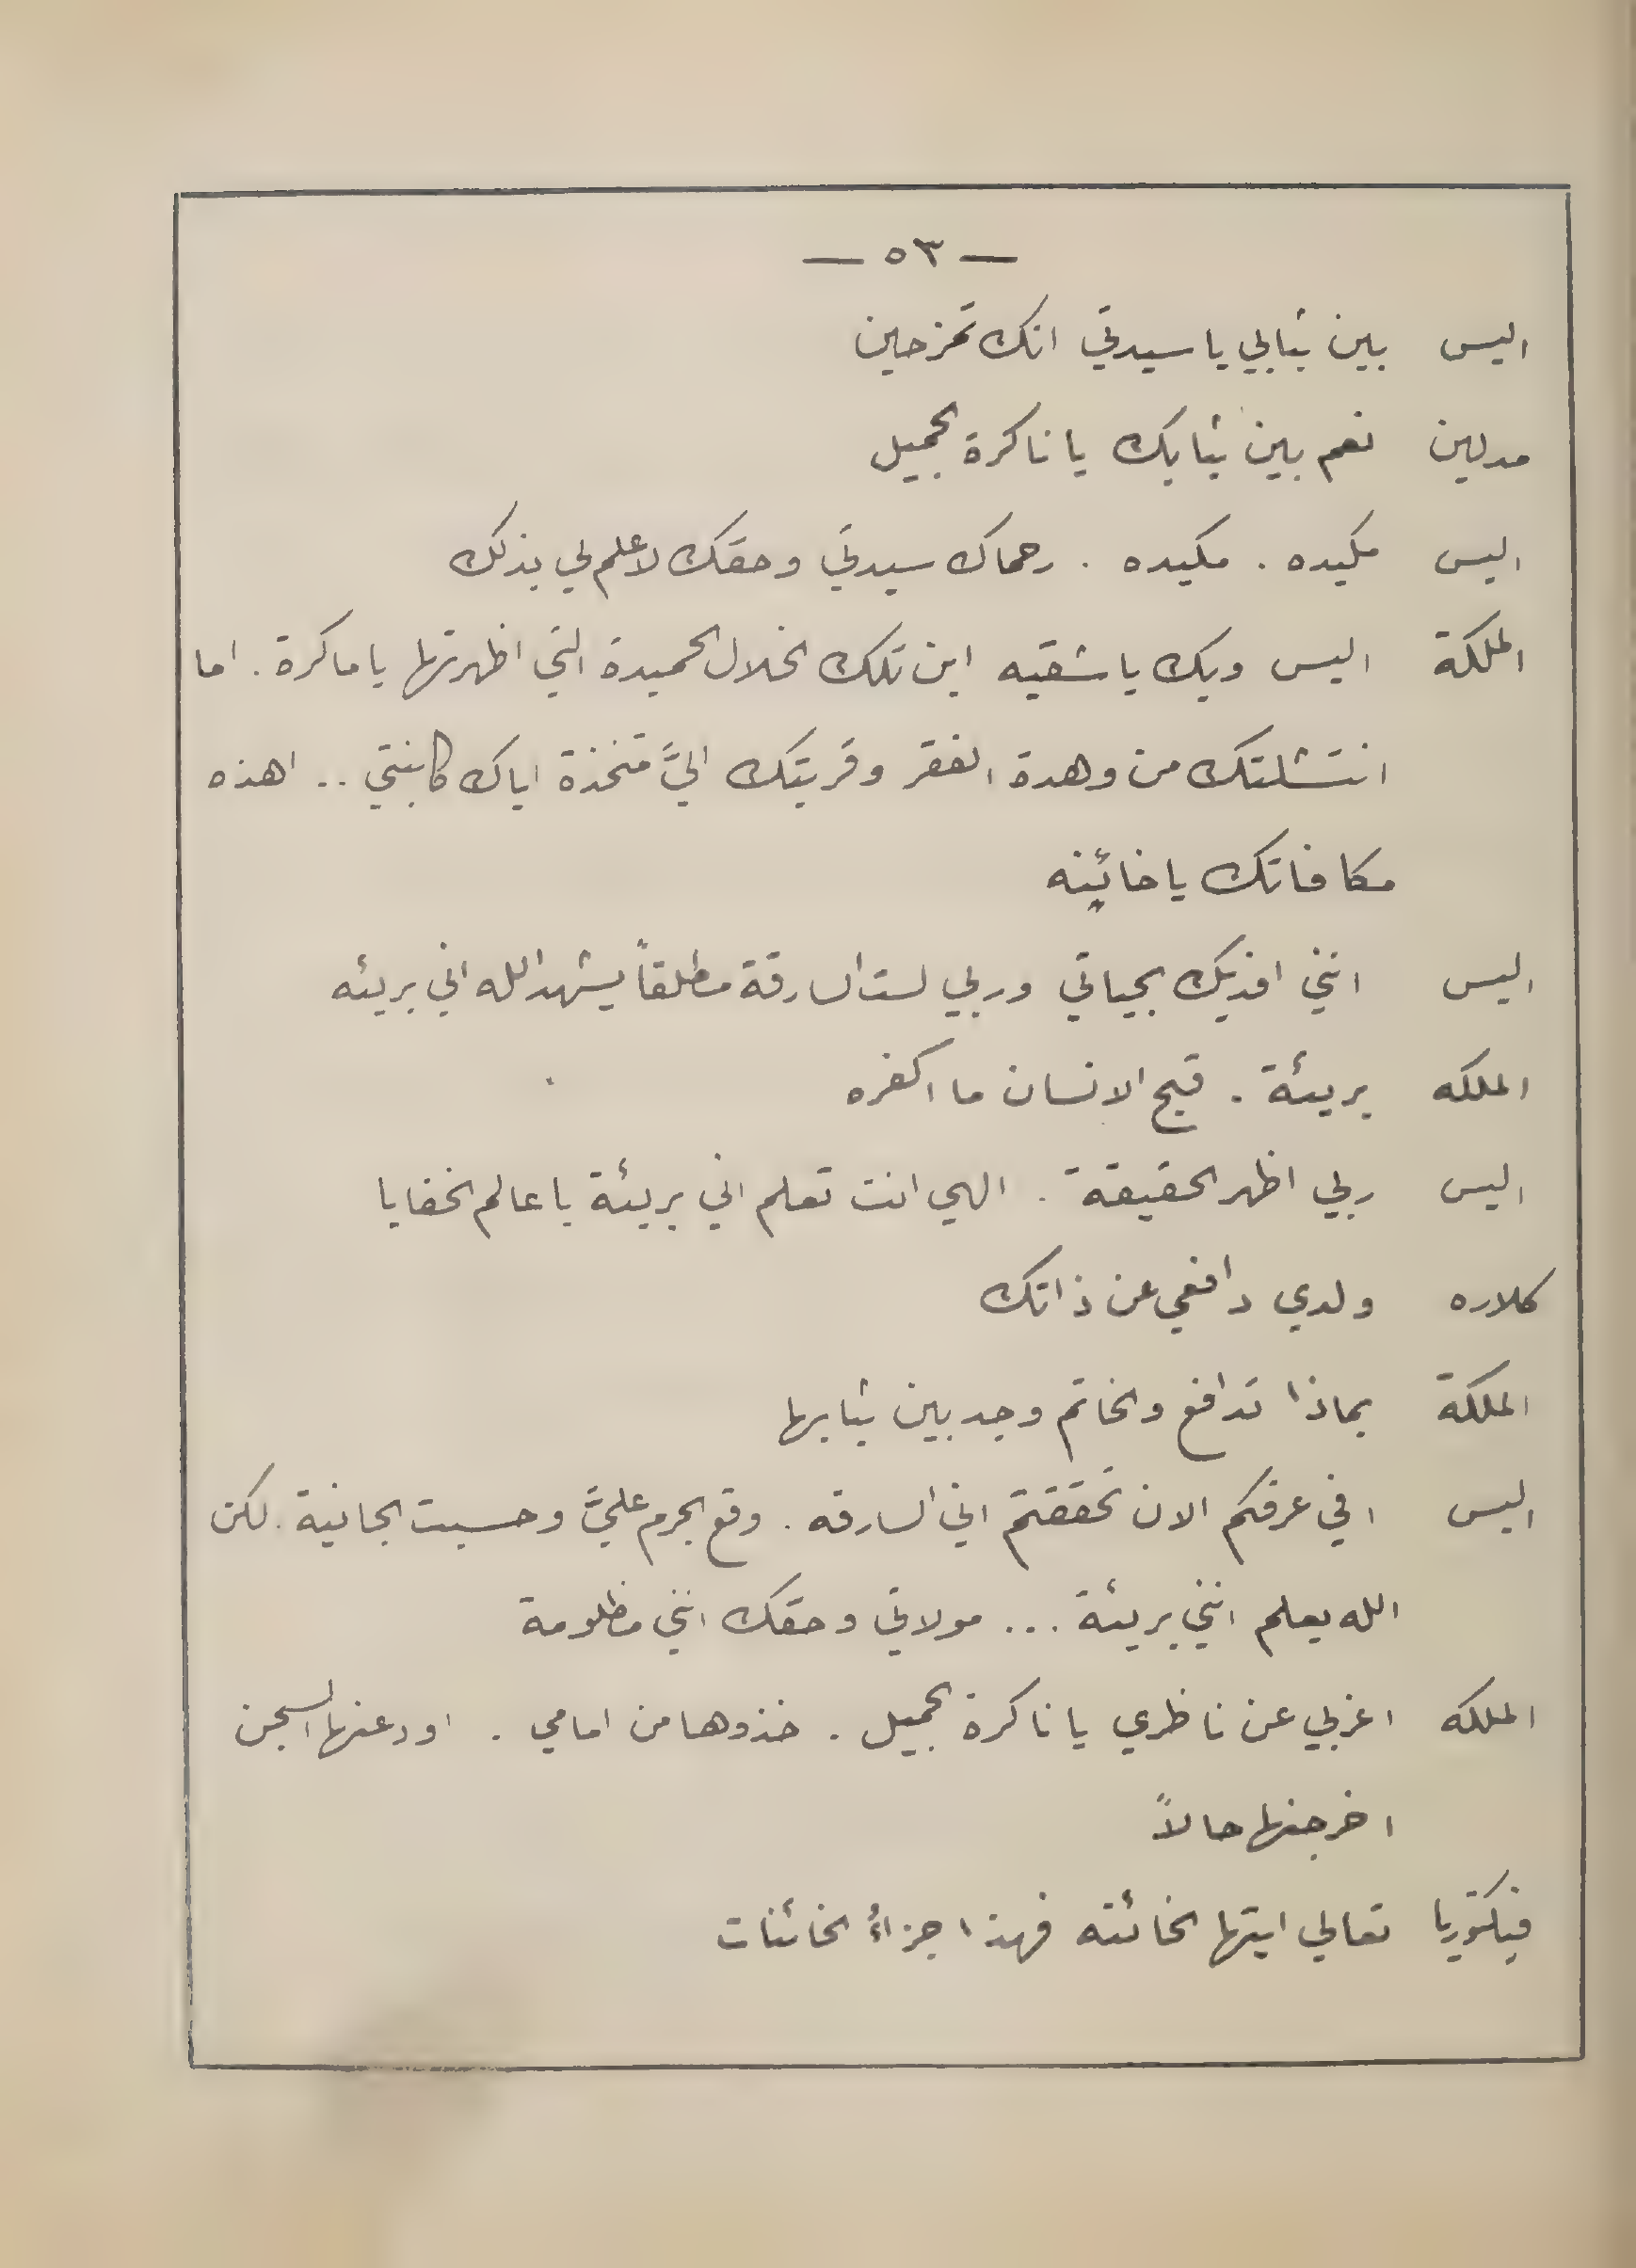 — ٥٣ —
اليس بين ثيابي يا سيدتي انك تمزحين
مدلين نعم بين ثيابك يا ناكرة الجميل
اليس مكيده . مكيده . رحماك سيدتي وحقك لا علم لي بذلك
الملكة اليس ويك يا شقيه اين تلك الخلال الحميدة التي اظهرتها يا ماكرة . اما
انتشلتك من وهدة الفقر وقربتك اليَّ متخذة اياك كابنتي .. اهذه
مكافاتك يا خائنه
اليس انني افديك بحياتي وربي لست السارقة مطلقاً يشهد الله اني بريئه
الملكه بريئة . قبح الانسان ما اكفره
اليس ربي اظهر الحقيقة . الهي انت تعلم اني بريئة يا عالم الخفايا
كلاره ولدي دافعي عن ذاتك
الملكة بماذا تدافع والخاتم وجد بين ثيابها
اليس افي عرفكم الان تحققتم اني السارقه . وقع الجرم عليَّ وحسبت الجانية . لكن
الله يعلم انني بريئة ... مولاتي وحقك انني مظلومة
الملكه اغربي عن ناظري يا ناكرة الجميل . خذوها من امامي . اودعنها السجن
اخرجنها حالاً
فيكتوريا تعالي ايتها الخائنه فهذا جزاءُ الخائنات